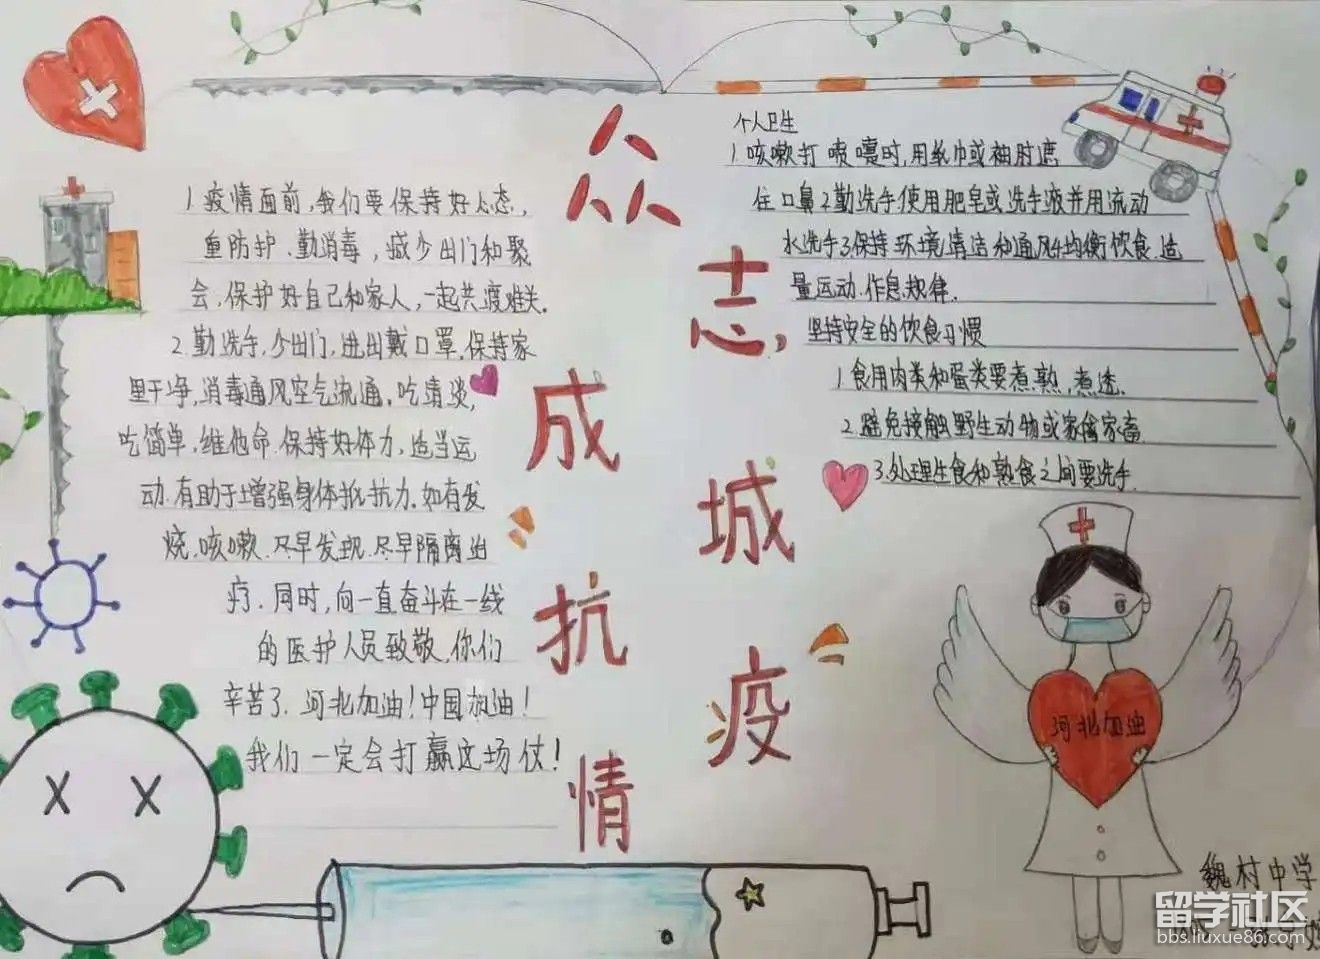 众志成城
抗疫情
1.疫情面前,我们要保持好心态,
重防护、勤消毒,减少出门和聚
会,保护好自己和家人,一起共渡难关。
2.勤洗手,少出门,进出戴口罩,保持家
里干净,消毒通风空气流通。吃清淡,
吃简单,维他命.保持好体力,适当运
动.有助于增强身体抵抗力。如有发
烧、咳嗽、尽早发现.尽早隔离治
疗.同时,向一直奋斗在一线
的医护人员致敬,你们
辛苦了、河北加油!中国加油!
我们一定会打赢这场仗!
个人卫生
1.咳嗽打喷嚏时,用纸巾或袖肘遮
住口鼻2.勤洗手使用肥皂或洗手液并用流动
水洗手3.保持环境清洁和通风4.均衡饮食.适
量运动.作息规律.
坚持安全的饮食习惯
1.食用肉类和蛋类要煮熟,煮透.
2.避免接触野生动物或家禽家畜
3.处理生食和熟食之间要洗手.
河北加油
魏村中学
留学社区
bbs.liuxue86.com